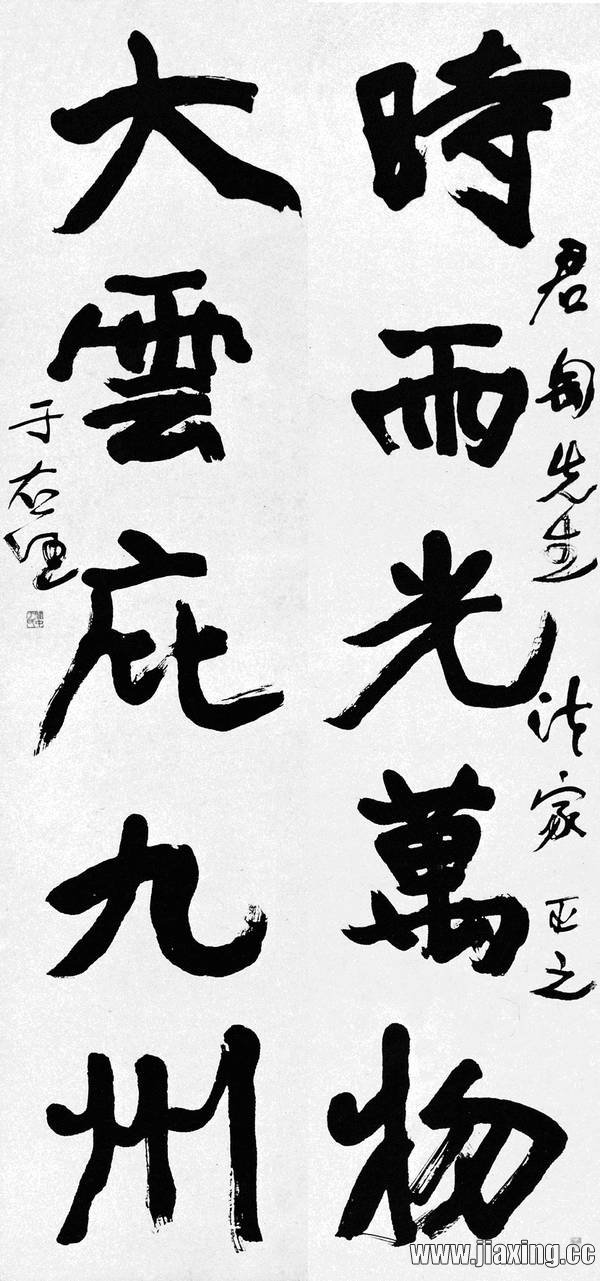 君匋先生 法家正之
時雨光萬物
大雲庇九州
于右任
www.jiaxing.cc